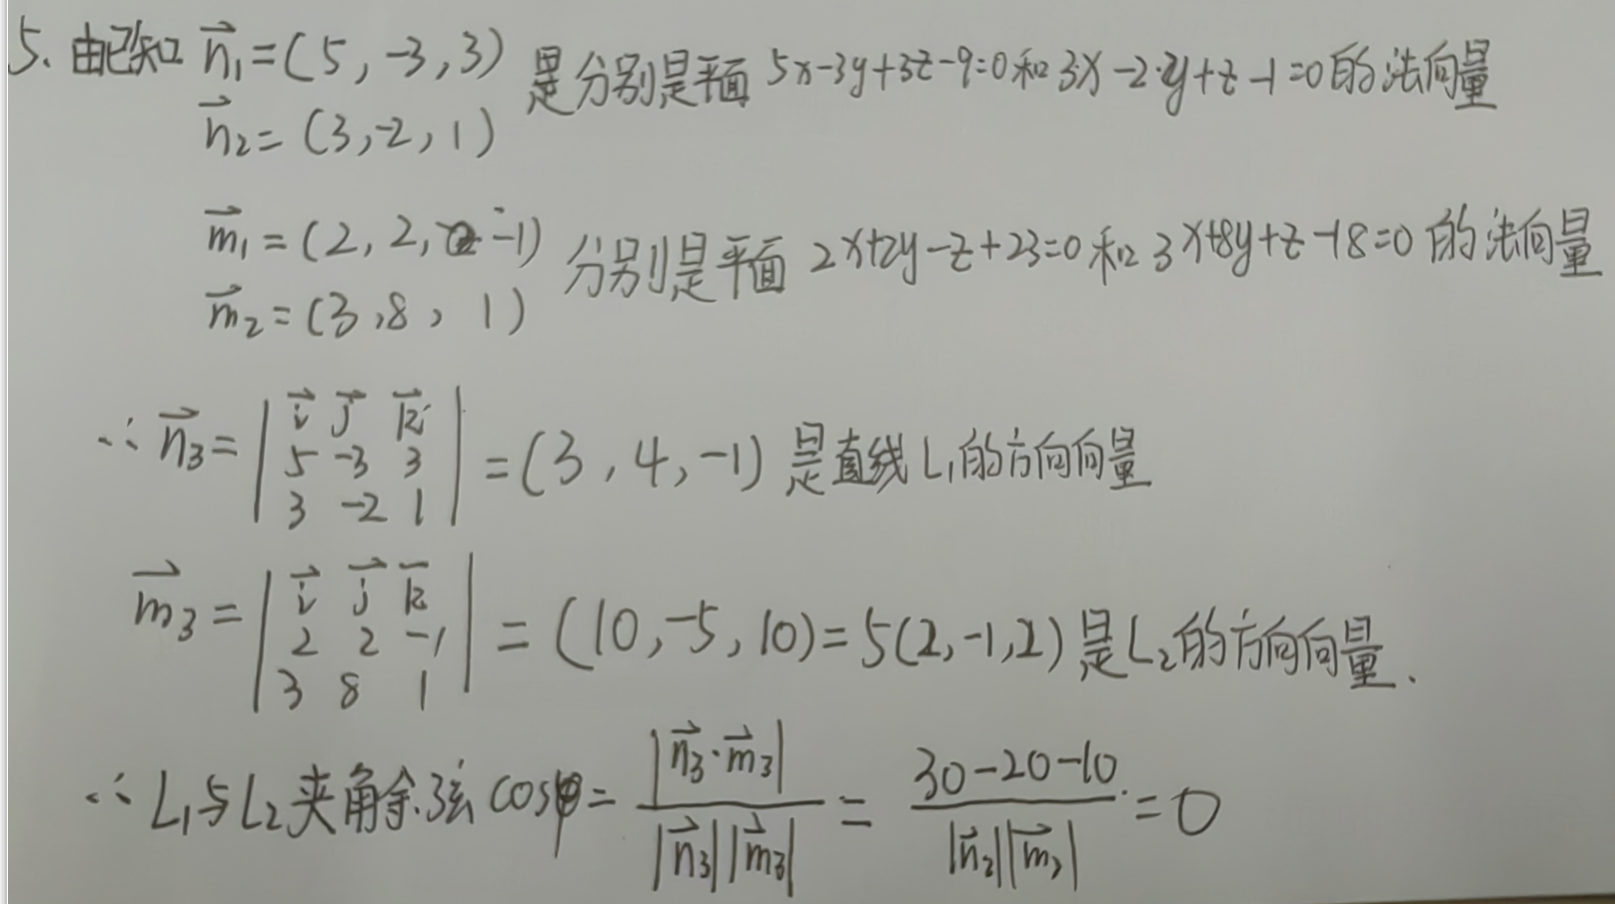 5. 由已知 n⃗₁=(5,-3,3) 是分别是平面 5x-3y+3z-9=0和 3x-2y+z-1=0的法向量
n⃗₂=(3,-2,1)
m⃗₁=(2,2,-1) 分别是平面 2x+2y-z+23=0 和 3x+8y+z-18=0 的法向量
m⃗₂=(3,8,1)
∴ n⃗₃= | i⃗ j⃗ k⃗ |
| 5 -3 3 | =(3,4,-1) 是直线L₁的方向向量
| 3 -2 1 |
m⃗₃= | i⃗ j⃗ k⃗ |
| 2 2 -1 | =(10,-5,10)=5(2,-1,2)是L₂的方向向量.
| 3 8 1 |
∴ L₁与L₂夹角余弦 cosφ= |n⃗₃·m⃗₃| / |n⃗₃||m⃗₃| = 30-20-10 / |n⃗₂||m⃗₂| =0